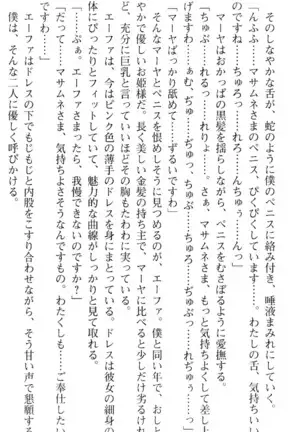 そのしなやかな舌が、蛇のように僕のペニスに絡み付き、唾液まみれ
「んふふ、マサムネさまのペニス、ぴくぴくしています……。わたしの舌、気持ちいい
のですね……ちゅろっ……れろ……んちゅぅ……んっ」
マーヤはおかっぱの黒髪を揺らしながら、ペニスをむさぼるように愛撫する。
「ちゅぷ……れるっ……れりょ……。さぁ、マサムネさま、もっと気持ちよくして差し上
げますわ……。ぁむ、ぢゅぅ、ちゅっ、ぢゅぷ……ちゅろ……ぢゅぷっ……れぢゅぅ……っ」
「マーヤばっかり舐めて……ずるいですわ」
そんなマーヤとペニスを恨めしそうに見つめるのが、エーファ。僕と同い年で、おしと
やかで優しいお姫様だ。長く美しい金髪の持ち主で、マーヤに比べると少しだけ劣るけれ
ど、充分に巨乳と言っていいほどその胸もたわわに実っている。
エーファは、今はピンク色の薄手のドレスを身にまとっている。ドレスは彼女の細身の
体にぴったりとフィットしていて、魅力的な曲線がしっかりと見て取れる。
「……ぷぁ。エーファさまったら、我慢できないのですか？」
「だって……マサムネさま、気持ちよさそうなんですもの。わたくしも……ご奉仕したい
エーファはドレスの下でもじもじと内股をこすり合わせながら、そう甘い声で懇願する
僕は、そんな二人に優しく呼びかける。